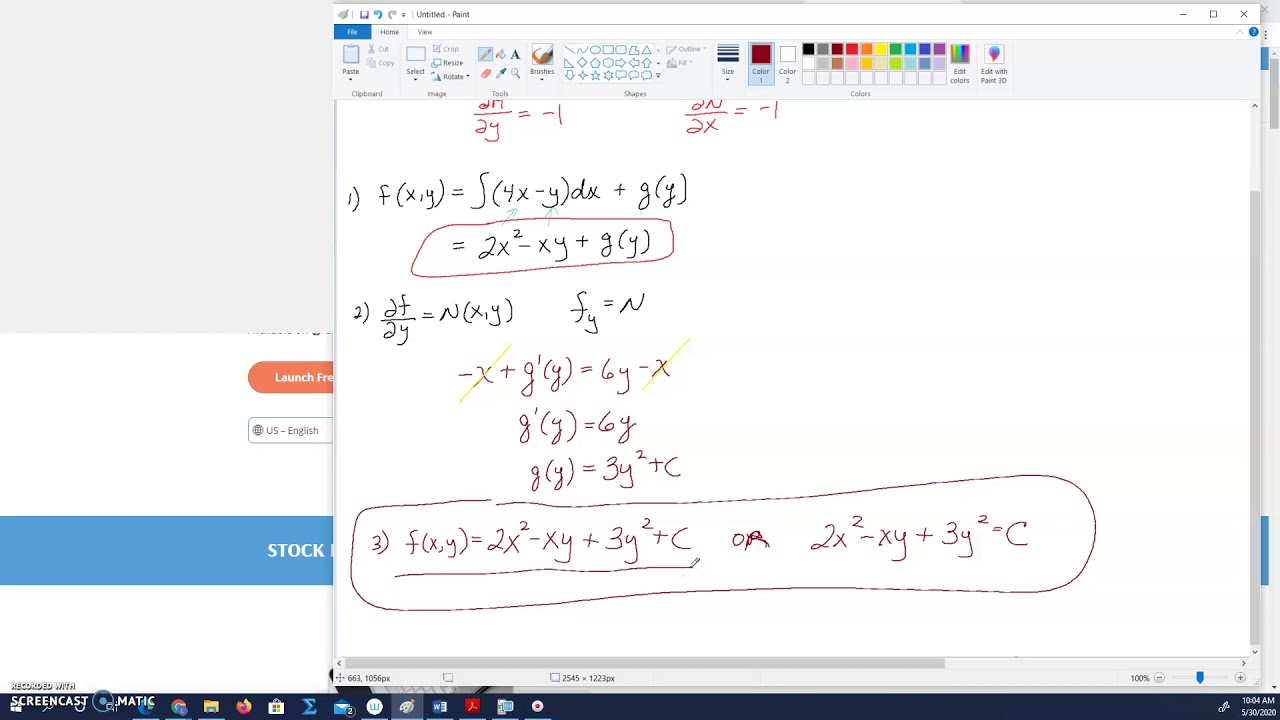 Untitled - Paint
File Home View
Paste Cut Copy Clipboard
Select Crop Resize Rotate Image
Tools
Brushes
Outline Fill Shapes
Size
Color 1 Color 2
Edit colors
Edit with Paint 3D
Colors
∂M/∂y = -1 ∂N/∂x = -1
1) f(x,y) = ∫(4x-y)dx + g(y)
= 2x² - xy + g(y)
2) ∂f/∂y = N(x,y) f_y = N
-x + g'(y) = 6y - x
g'(y) = 6y
g(y) = 3y² + C
3) f(x,y) = 2x² - xy + 3y² + C OR 2x² - xy + 3y² = C
Launch Fre
US – English
STOCK
663, 1056px 2545 × 1223px 100%
RECORDED WITH
SCREENCAST MATIC
10:04 AM
5/30/2020